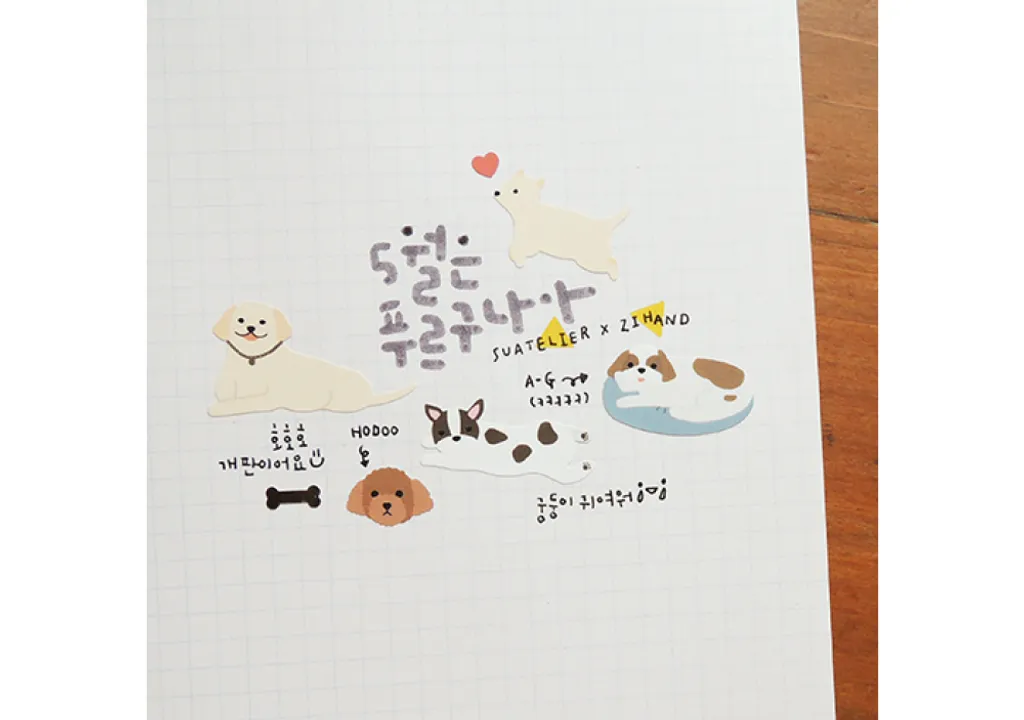 5월은
푸르구나아
SUATELIER X ZIHAND
A-G
(ㅋㅋㅋㅋㅋ)
호호호
개판이어요
HODOO
궁둥이 귀여워